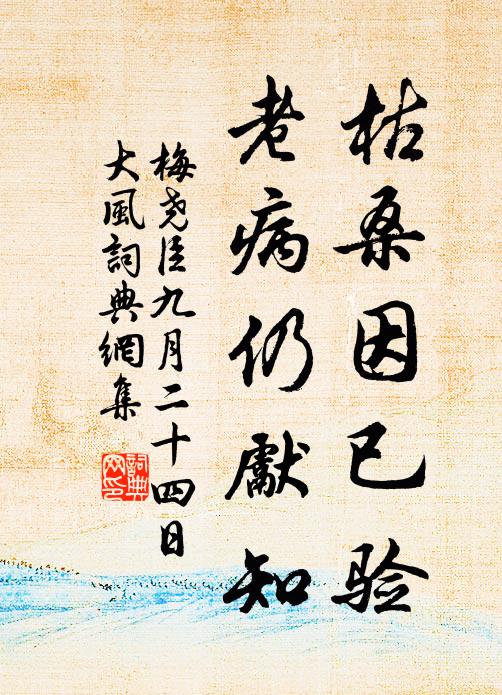 枯桑因已验
老病仍獻知
梅尧臣九月二十四日
大風詞典網集
詞典
网印